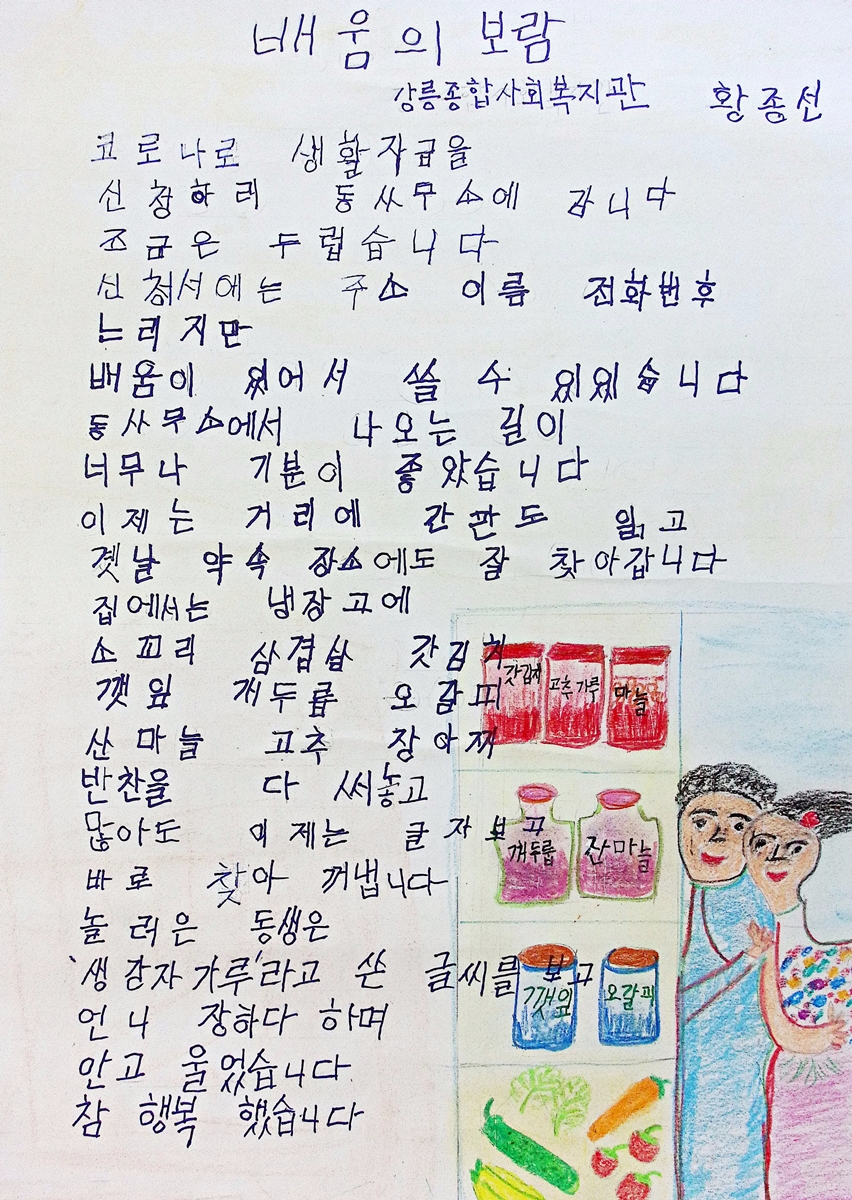 배움의 보람
강릉종합사회복지관 황종선
코로나로 생활자금을
신청하러 동사무소에 갑니다
조금은 두렵습니다
신청서에는 주소 이름 전화번후
느리지만
배움이 있어서 쓸 수 있있습니다
동사무소에서 나오는 길이
너무나 기분이 좋았습니다
이제는 거리에 간판도 읽고
옛날 약속 장소에도 잘 찾아갑니다
집에서는 냉장고에
소꼬리 삼겹살 갓김치
깻잎 개두릅 오갈피
산마늘 고추 장아찌
반찬을 다 써놓고
많아도 이제는 글자보고
바로 찾아 꺼냅니다
놀러은 동생은
'생강자가루'라고 쓴 글씨를 보고
언니 장하다 하며
안고 울었습니다
참 행복 했습니다
갓김치 고추가루 마늘
개두릅 잔마늘
깻잎 오갈피